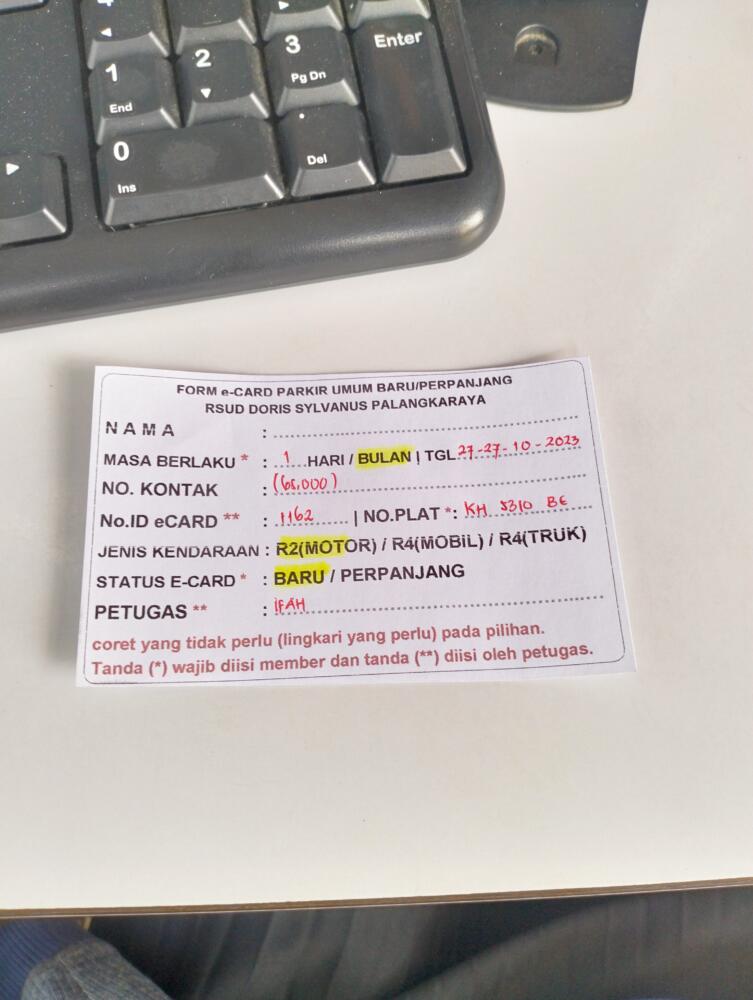 4
1
End
2
3
Pg Dn
Enter
0
Ins
.
Del
FORM e-CARD PARKIR UMUM BARU/PERPANJANG
RSUD DORIS SYLVANUS PALANGKARAYA
N A M A :
MASA BERLAKU * : 1 HARI / BULAN | TGL 27-27-10-2023
NO. KONTAK : (65.000)
No.ID eCARD ** : 1162 | NO.PLAT *: KH 5310 BE
JENIS KENDARAAN : R2(MOTOR) / R4(MOBiL) / R4(TRUK)
STATUS E-CARD * : BARU / PERPANJANG
PETUGAS ** : IFAH
coret yang tidak perlu (lingkari yang perlu) pada pilihan.
Tanda (*) wajib diisi member dan tanda (**) diisi oleh petugas.